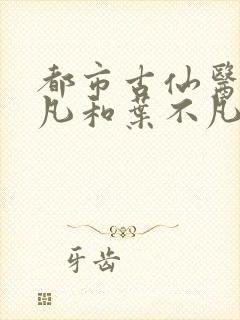 都市古仙醫
凡和葉不凡
牙齿